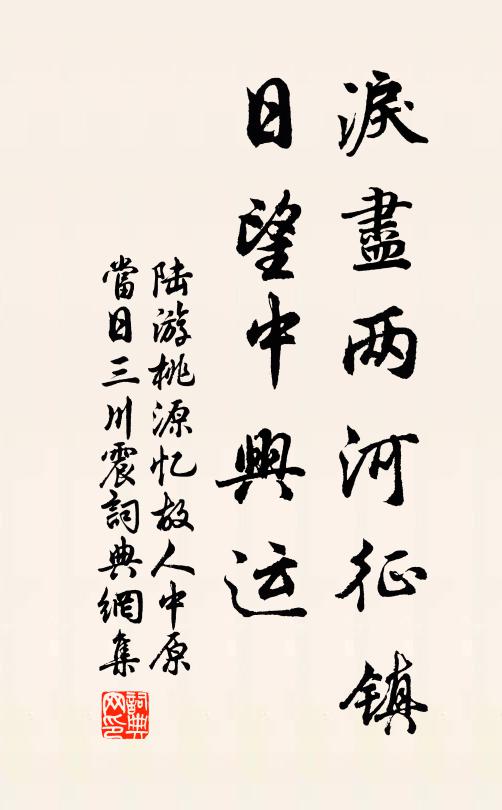 淚盡两河征鎮
日望中興运
陆游桃源忆故人中原
當日三川震詞典網集
詞典
网印